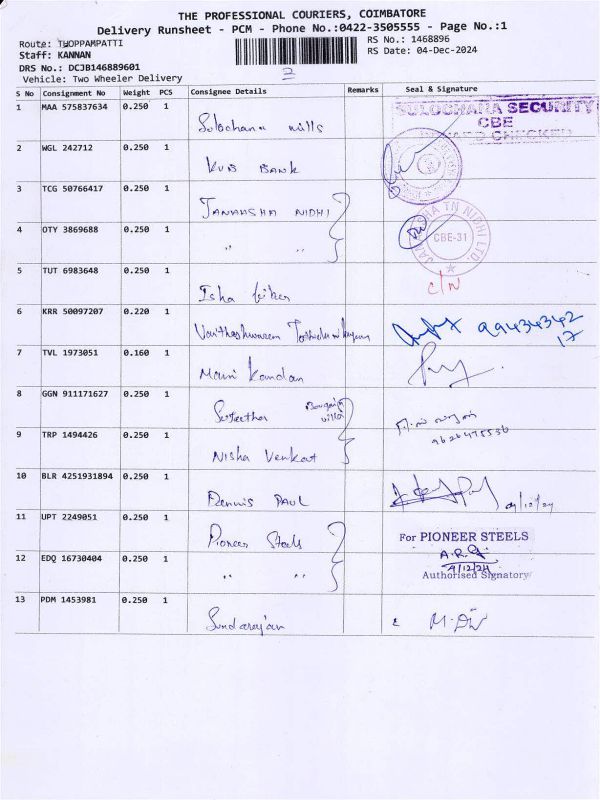 THE PROFESSIONAL COURIERS, COIMBATORE
Delivery Runsheet - PCM - Phone No.:0422-3505555 - Page No.:1
Route: THOPPAMPATTI
RS No.: 1468896
Staff: KANNAN
RS Date: 04-Dec-2024
DRS No.: DCJB146889601
2
Vehicle: Two Wheeler Delivery
S No Consignment No Weight PCS Consignee Details Remarks Seal & Signature
1 MAA 575837634 0.250 1 Sulochana mills
SULOCHANA SECURITY
CBE
CHECKED
2 WGL 242712 0.250 1 KVB BANK
3 TCG 50766417 0.250 1 JANAKSHA NIDHI
4 OTY 3869688 0.250 1 " "
TN NIDHI LTD.
CBE-31
5 TUT 6983648 0.250 1 Isha
C/N
6 KRR 50097207 0.220 1
7 TVL 1973051 0.160 1 Mani Kandan
8 GGN 911171627 0.250 1
9 TRP 1494426 0.250 1 Nisha Venkat
10 BLR 4251931894 0.250 1 Dennis PAUL
4/12/24
11 UPT 2249051 0.250 1 Pioneer Steels
For PIONEER STEELS
12 EDQ 16730404 0.250 1 " "
4/12/24
Authorised Signatory
13 PDM 1453981 0.250 1 Sundarajan